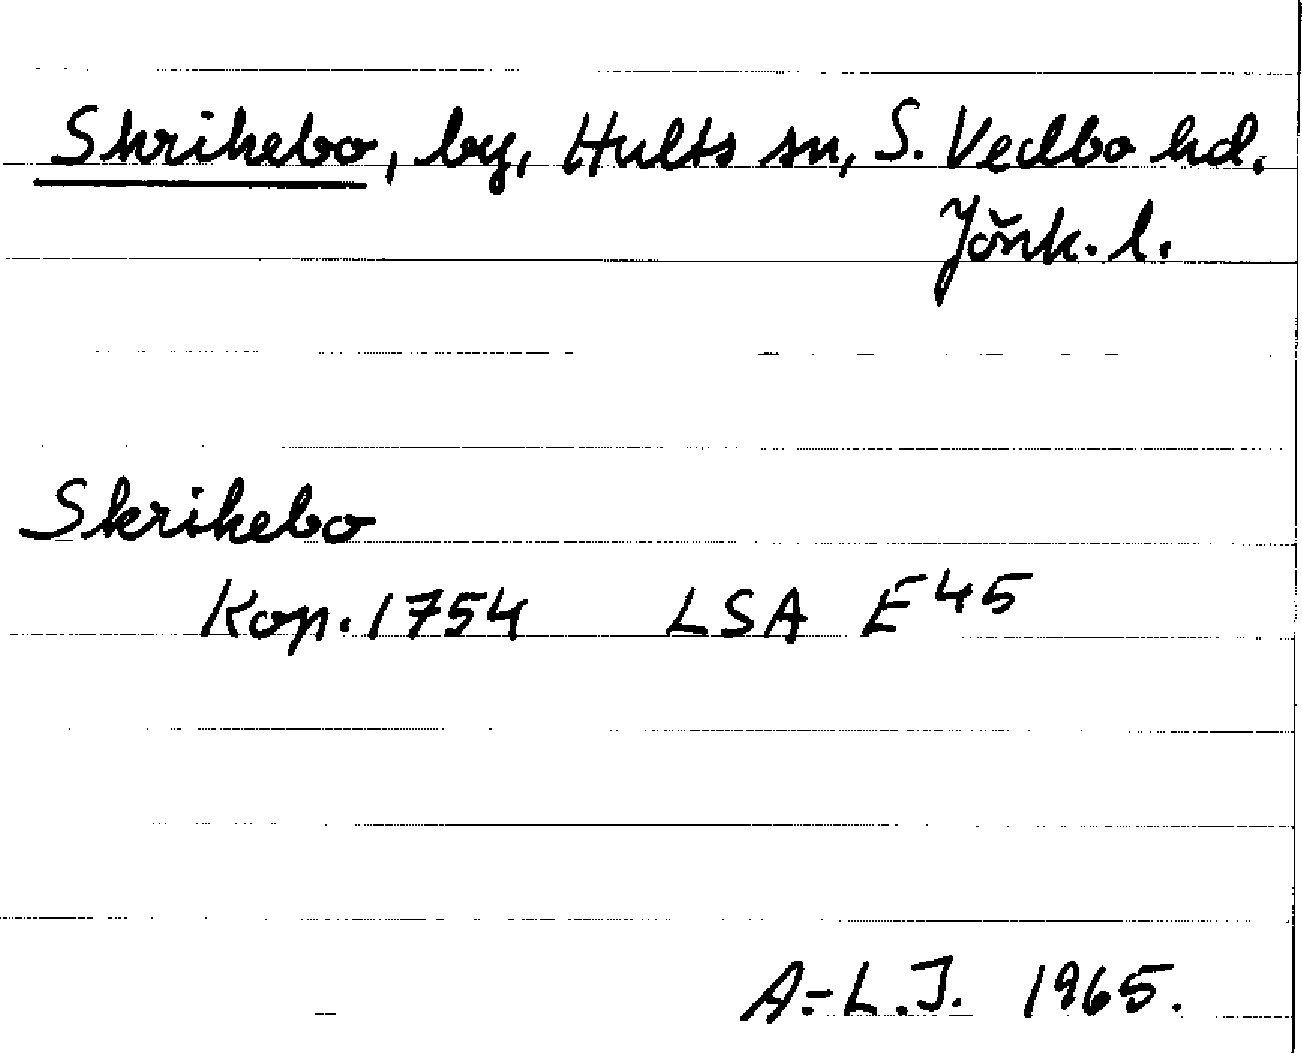 Skrikebo, by, Hults sn, S. Vedbo hd.
Jönk. l.
Skrikebo
Kop. 1754 LSA E 45
A.-L.J. 1965.